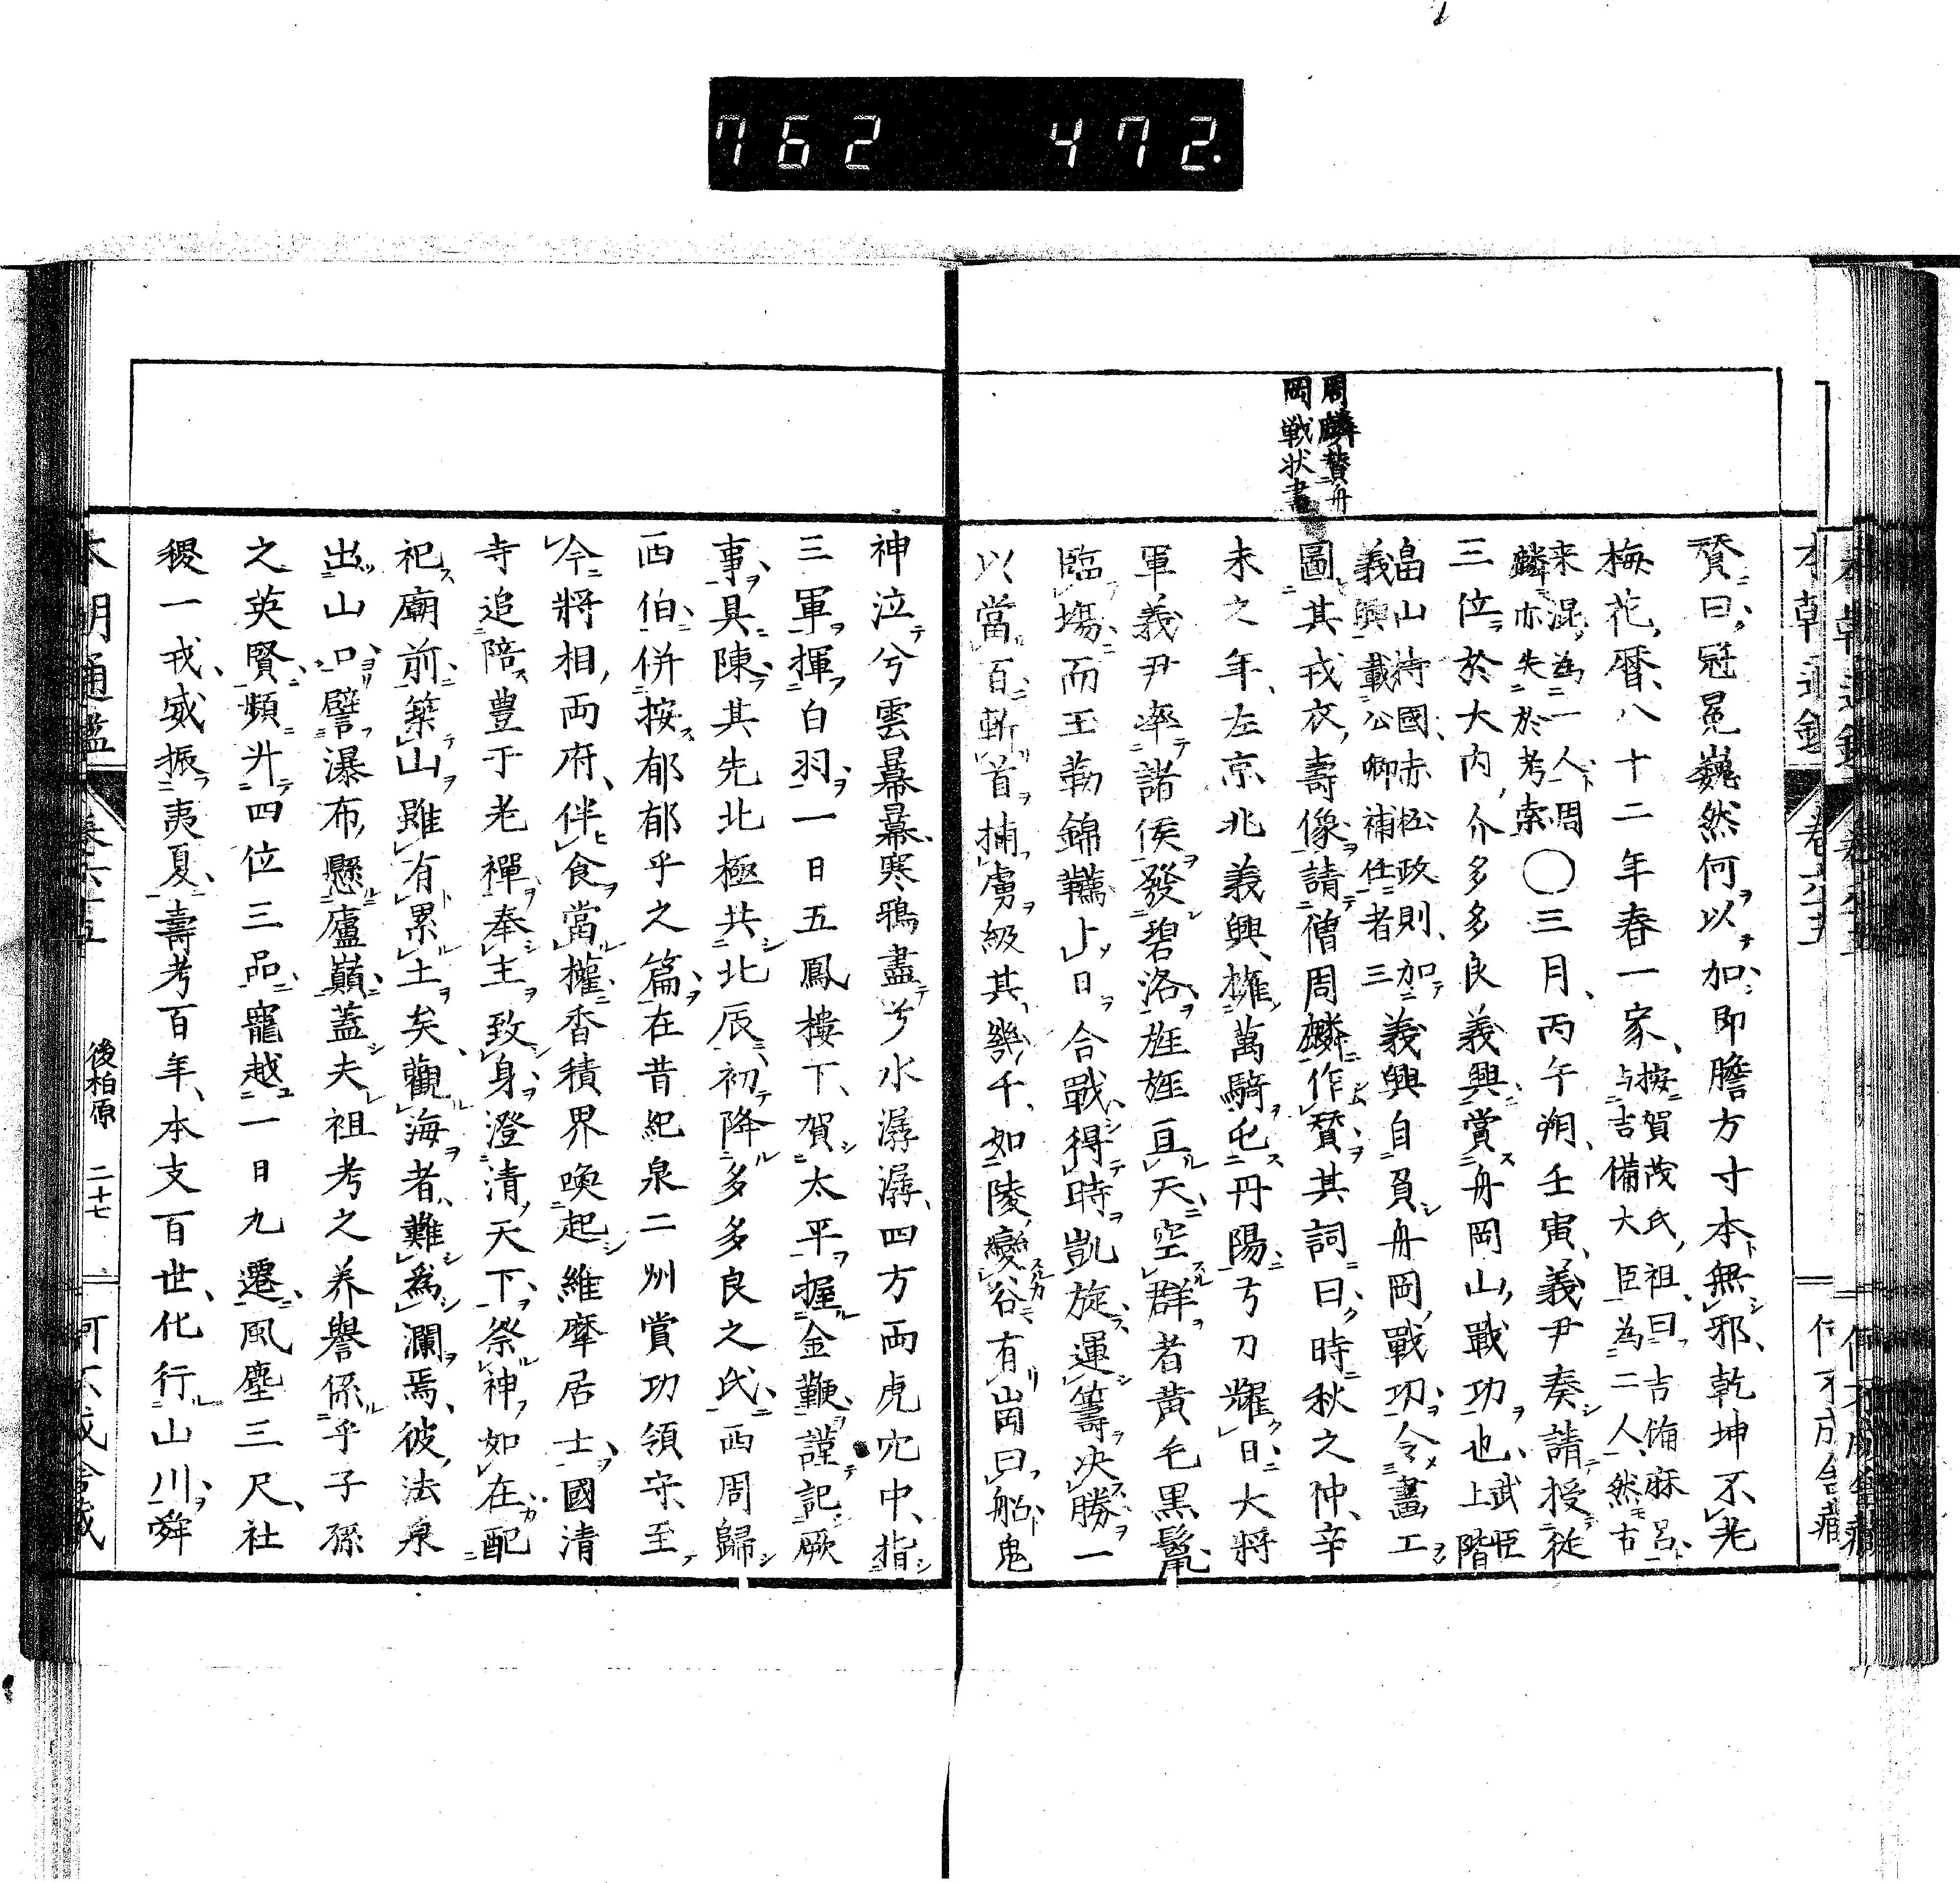 762 472.
周麟賛舟
岡戦状畫
賛曰冠冕巍然何以加即膽方寸本無邪乾坤不老
梅花暦八十二年春一家按賀茂氏祖曰吉備麻呂
与吉備大臣為二人然古
来混為一人周
麟亦失於考索〇三月丙午朔壬寅義尹奏請授従
三位於大内介多多良義興賞舟岡山戰功也武臣
上階
畠山持國赤松政則加義興自負舟岡戰功令畫工
義興載公卿補任者三
圖其戎衣壽像請僧周麟作賛其詞曰時秋之仲辛
未之年左京兆義興擁萬騎屯丹陽弓刀耀日大將
軍義尹率諸侯發碧洛旌旌亘天空群者黄毛黒鬣
臨場而玉勒錦韉卜日合戰得時凱旋運籌决勝一
以當百斬首捕虜級其幾千如陵變谷有崗曰船鬼
神泣兮雲幕幕寒鴉盡兮水潺潺四方両虎穴中指
三軍揮白羽一日五鳳樓下賀太平握金鞭謹記厥
事具陳其先北極共北辰初降多多良之氏西周歸
西伯併按郁郁乎之篇在昔紀泉二州賞功領守至
今將相両府伴食當權香積界喚起維摩居士國清
寺追陪豊于老禪奉主致身澄清天下祭神如在配
祀廟前築山雖有累土矣觀海者難爲瀾焉彼法泉
出山口譬瀑布懸廬巓蓋夫祖考之养譽係乎子孫
之英賢頻升四位三品寵越一日九遷風塵三尺社
稷一戎威振夷夏壽考百年本支百世化行山川舜
本朝通鑑 巻六十五 後柏原 二十七